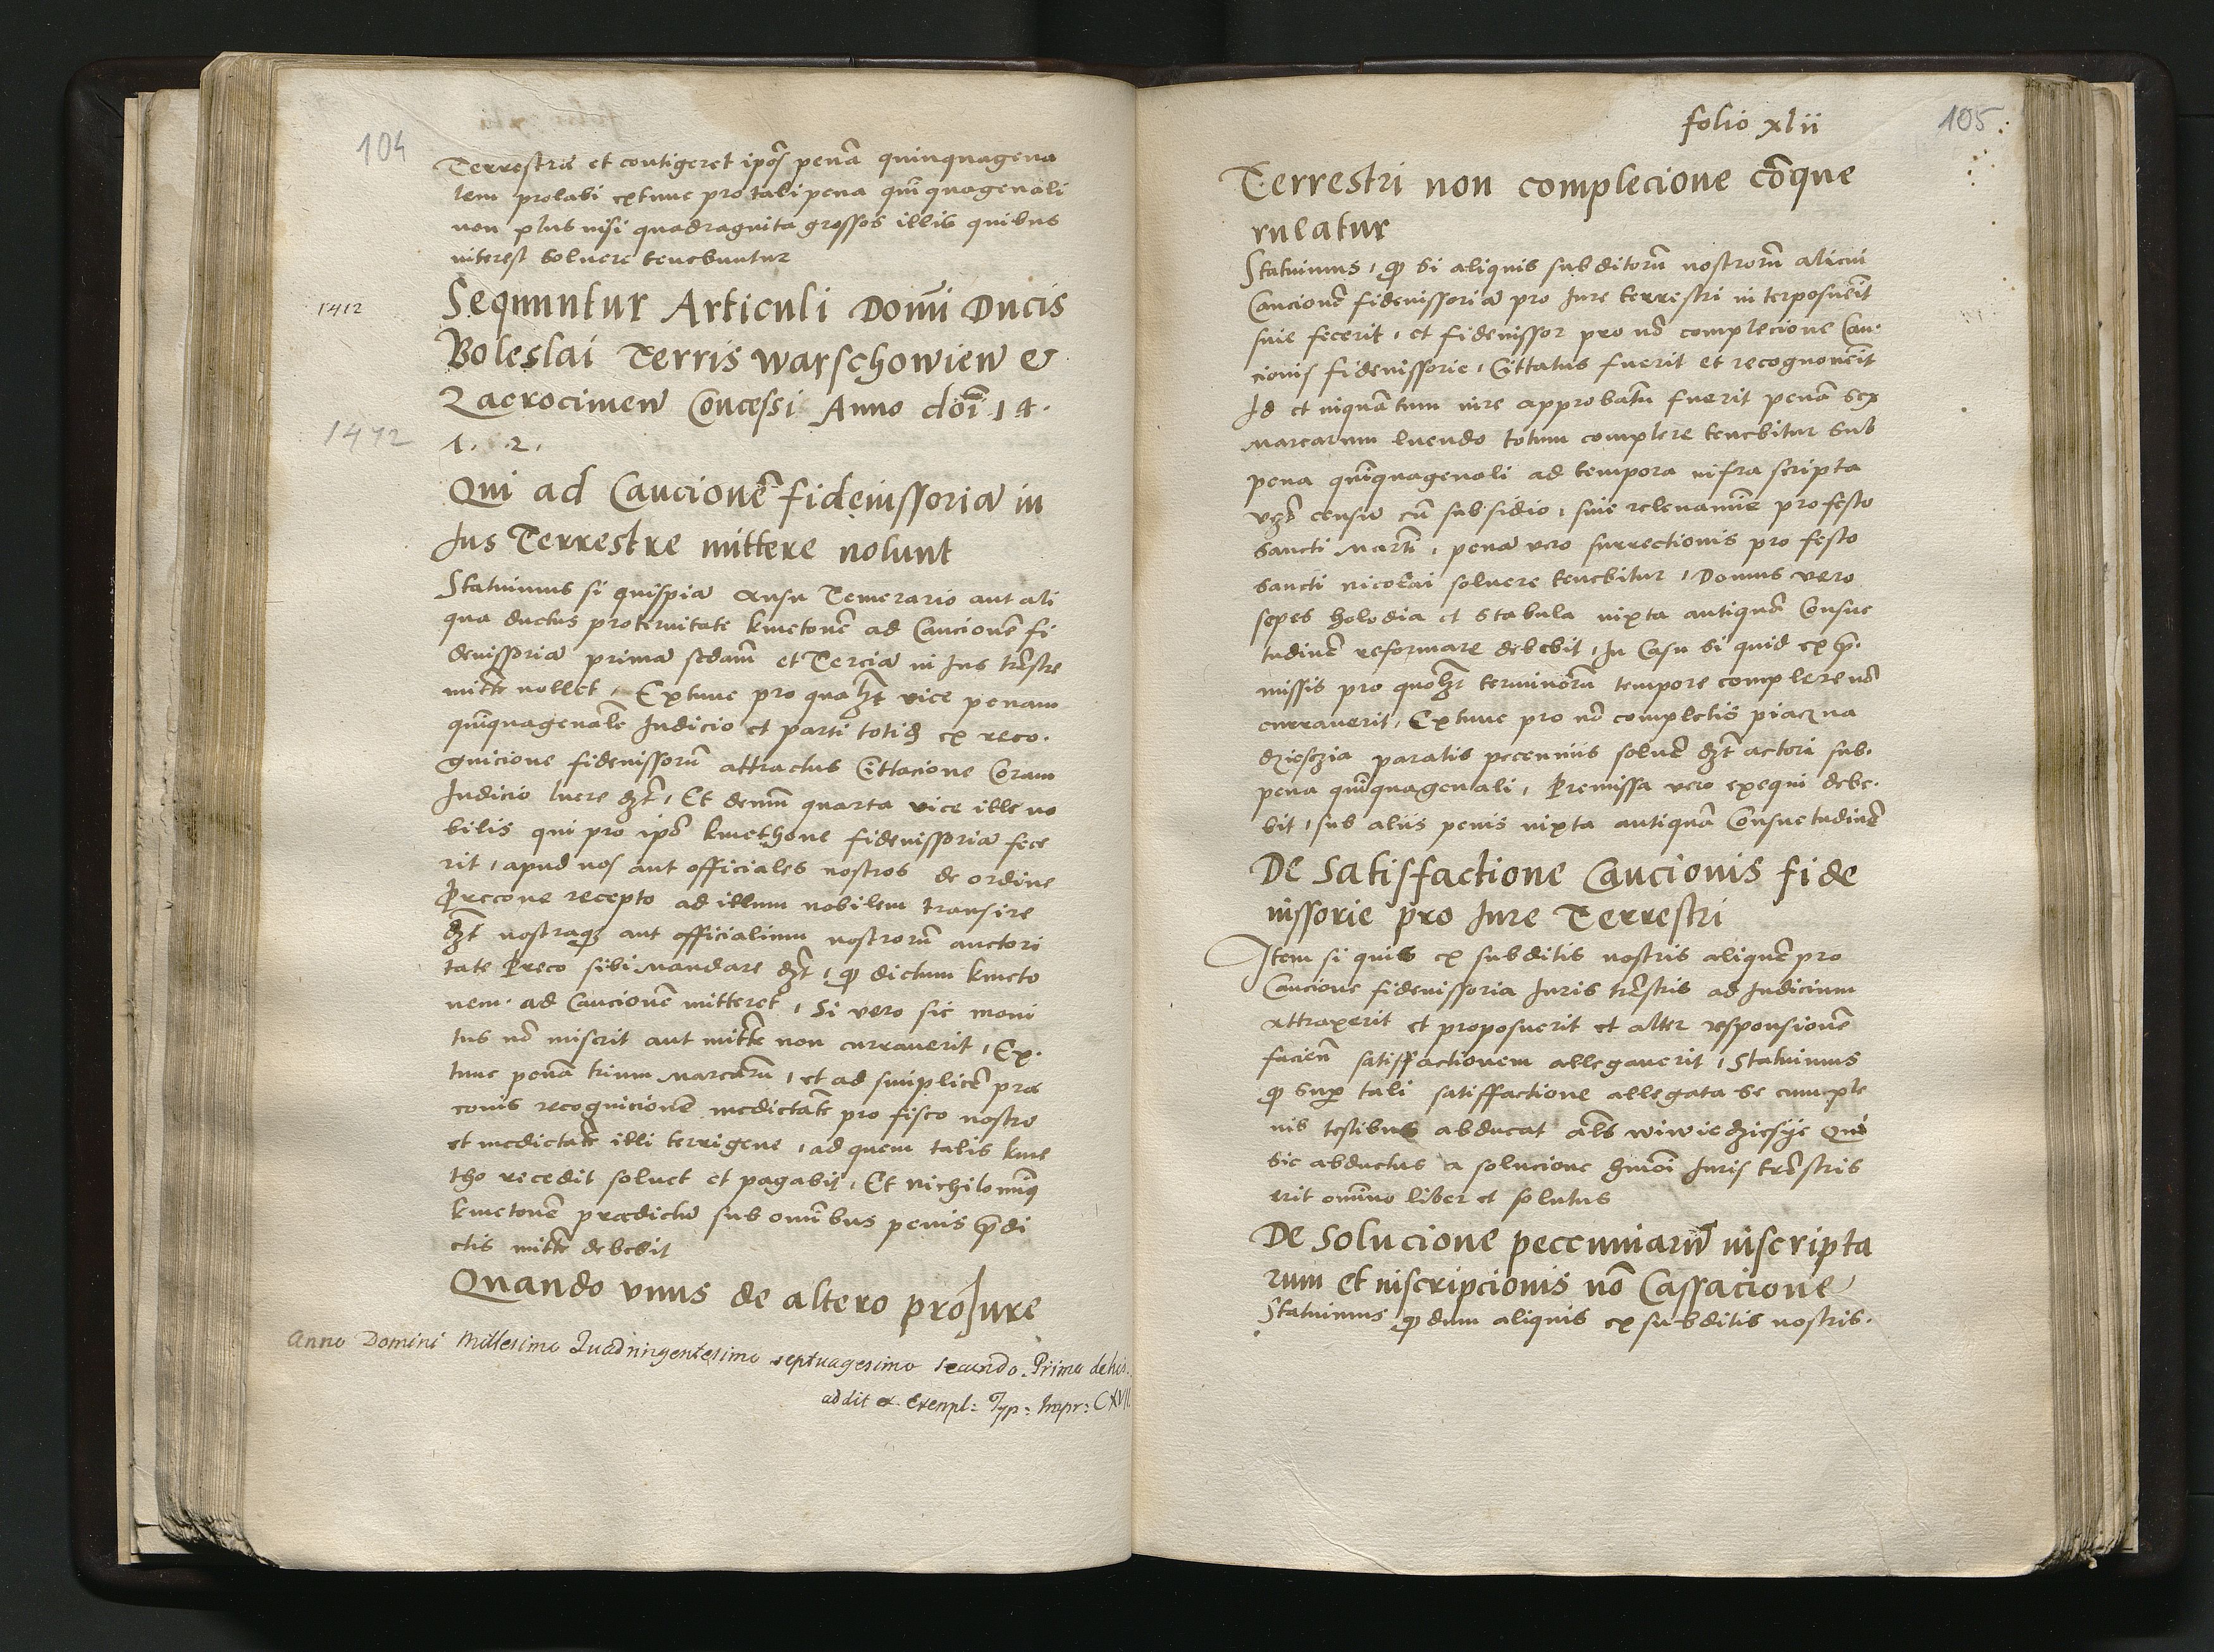 104
Terrestrā et contigeret ip̄os penā quinquagena
lem prolabi extunc pro tali pena quīquagenali
non plus nisi quadraginta grossos illis quibus
interest soluere tenebuntur
1412
Sequuntur Articuli Domī Ducis
Boleslai Terris Warschowien̄ &
Zacrocimen̄ Concessi Anno dōi 14.
1472
1. .2.
Qui ad Caucionē fideiussoriā in
Jus Terrestre mittere nolunt
Statuimus si quispiā Ausu Temerario aut ali
qua ductus proteruitate kmetonē ad Caucionē fi
deiussoriā primā sedam̄ et Terciā in Jus trr̄estre
mittē nollet, Extunc pro qualꝫt vice penam
quīquagenalē Judicio et parti totiꝺ ex reco.
gnicione fideiussorū attractus Cittacione Coram
Judicio luere ꝺꝫt, Et demū quarta vice ille no
bilis qui pro ip̄o kmethone fideiussoriā fece
rit, apud nos aut officiales nostros de ordine
Precone recepto ad illum nobilem transire
ꝺꝫt nostraqꝫ aut officialium nostrorū auctori
tate Preco sibi Mandare ꝺꝫt, ꝙ dictum kmeto
nem. ad Caucionē mitteret, Si vero sic moni
tus nō miserit aut mittē non curauerit, Ex.
tunc penā trium Marcarū, et ad simplicē præ
conis recognicionē medietatē pro fisco nostro
et medietatē illi terrigene, ad quem talis kme
tho recedit soluet et pagabit, Et nichilominꝰ
kmetonē prædictū sub omībus penis p̄di
ctis mittē debebit
Quando vnus de altero pro Jure
Anno Domini Millesimo Quadringentesimo septuagesimo secundo. Prima dehis.
addit ex. Exempl: Typ: Impr: CXVII
folio xlii
105
Terrestri non complecione cōque
rulatur
Statuimus, ꝙ si aliquis subditorū nostrorū alicui
Caucionē fideiussoriā pro Jure terrestri interposuēit
siue fecerit, et fideiussor pro nō complecione Cau.
cionis fideiussorie, Cittatus fuerit et recognouēit
Id et inquantum iure approbatū fuerit penā sex
Marcarum luendo totum complere tenebitur sub
pena quīquagenali ad tempora infra scripta
vꝫ censū cū subsidio, siue releuamīe pro festo
Sancti Martī, penā vero surrectionis pro festo
Sancti Nicolai soluere tenebitur, Domus vero
sepes holodia et Stabula iuxta antiquā Consue
tudinē reformare debebit, In Casu si quid ex p̄.
missis pro quolꝫt terminorū tempore complere nō
currauerit, Extunc pro nō completis piaczna
dziesczia paratis peccuniis soluē ꝺꝫt actori sub.
pena quīquagenali, Premissa vero exequi debe.
bit, sub aliis penis iuxta antiquā Consuetudinē
De Satisfactione Caucionis fide
iussorie pro Jure Terrestri
Item si quis ex subditis nostris aliquē pro
Caucione fideiussoria Juris trr̄estris ad Judicium
attraxerit et proposuerit et alter responsionē
facien̄ satisfactionem allegauerit, Statuimus
ꝙ Suꝑ tali satisffactione allegata se cum ꝑte
nis testibus abducat al̄s wiwiedziesye Qui
sic abductus a solucione hmōi Juris trr̄estris
erit omīno liber et solutus
De Solucione peccuniarū inscripta
rum et inscripcionis nō Cassacione
Statuimus ꝙ dum aliquis ex subditis nostris.